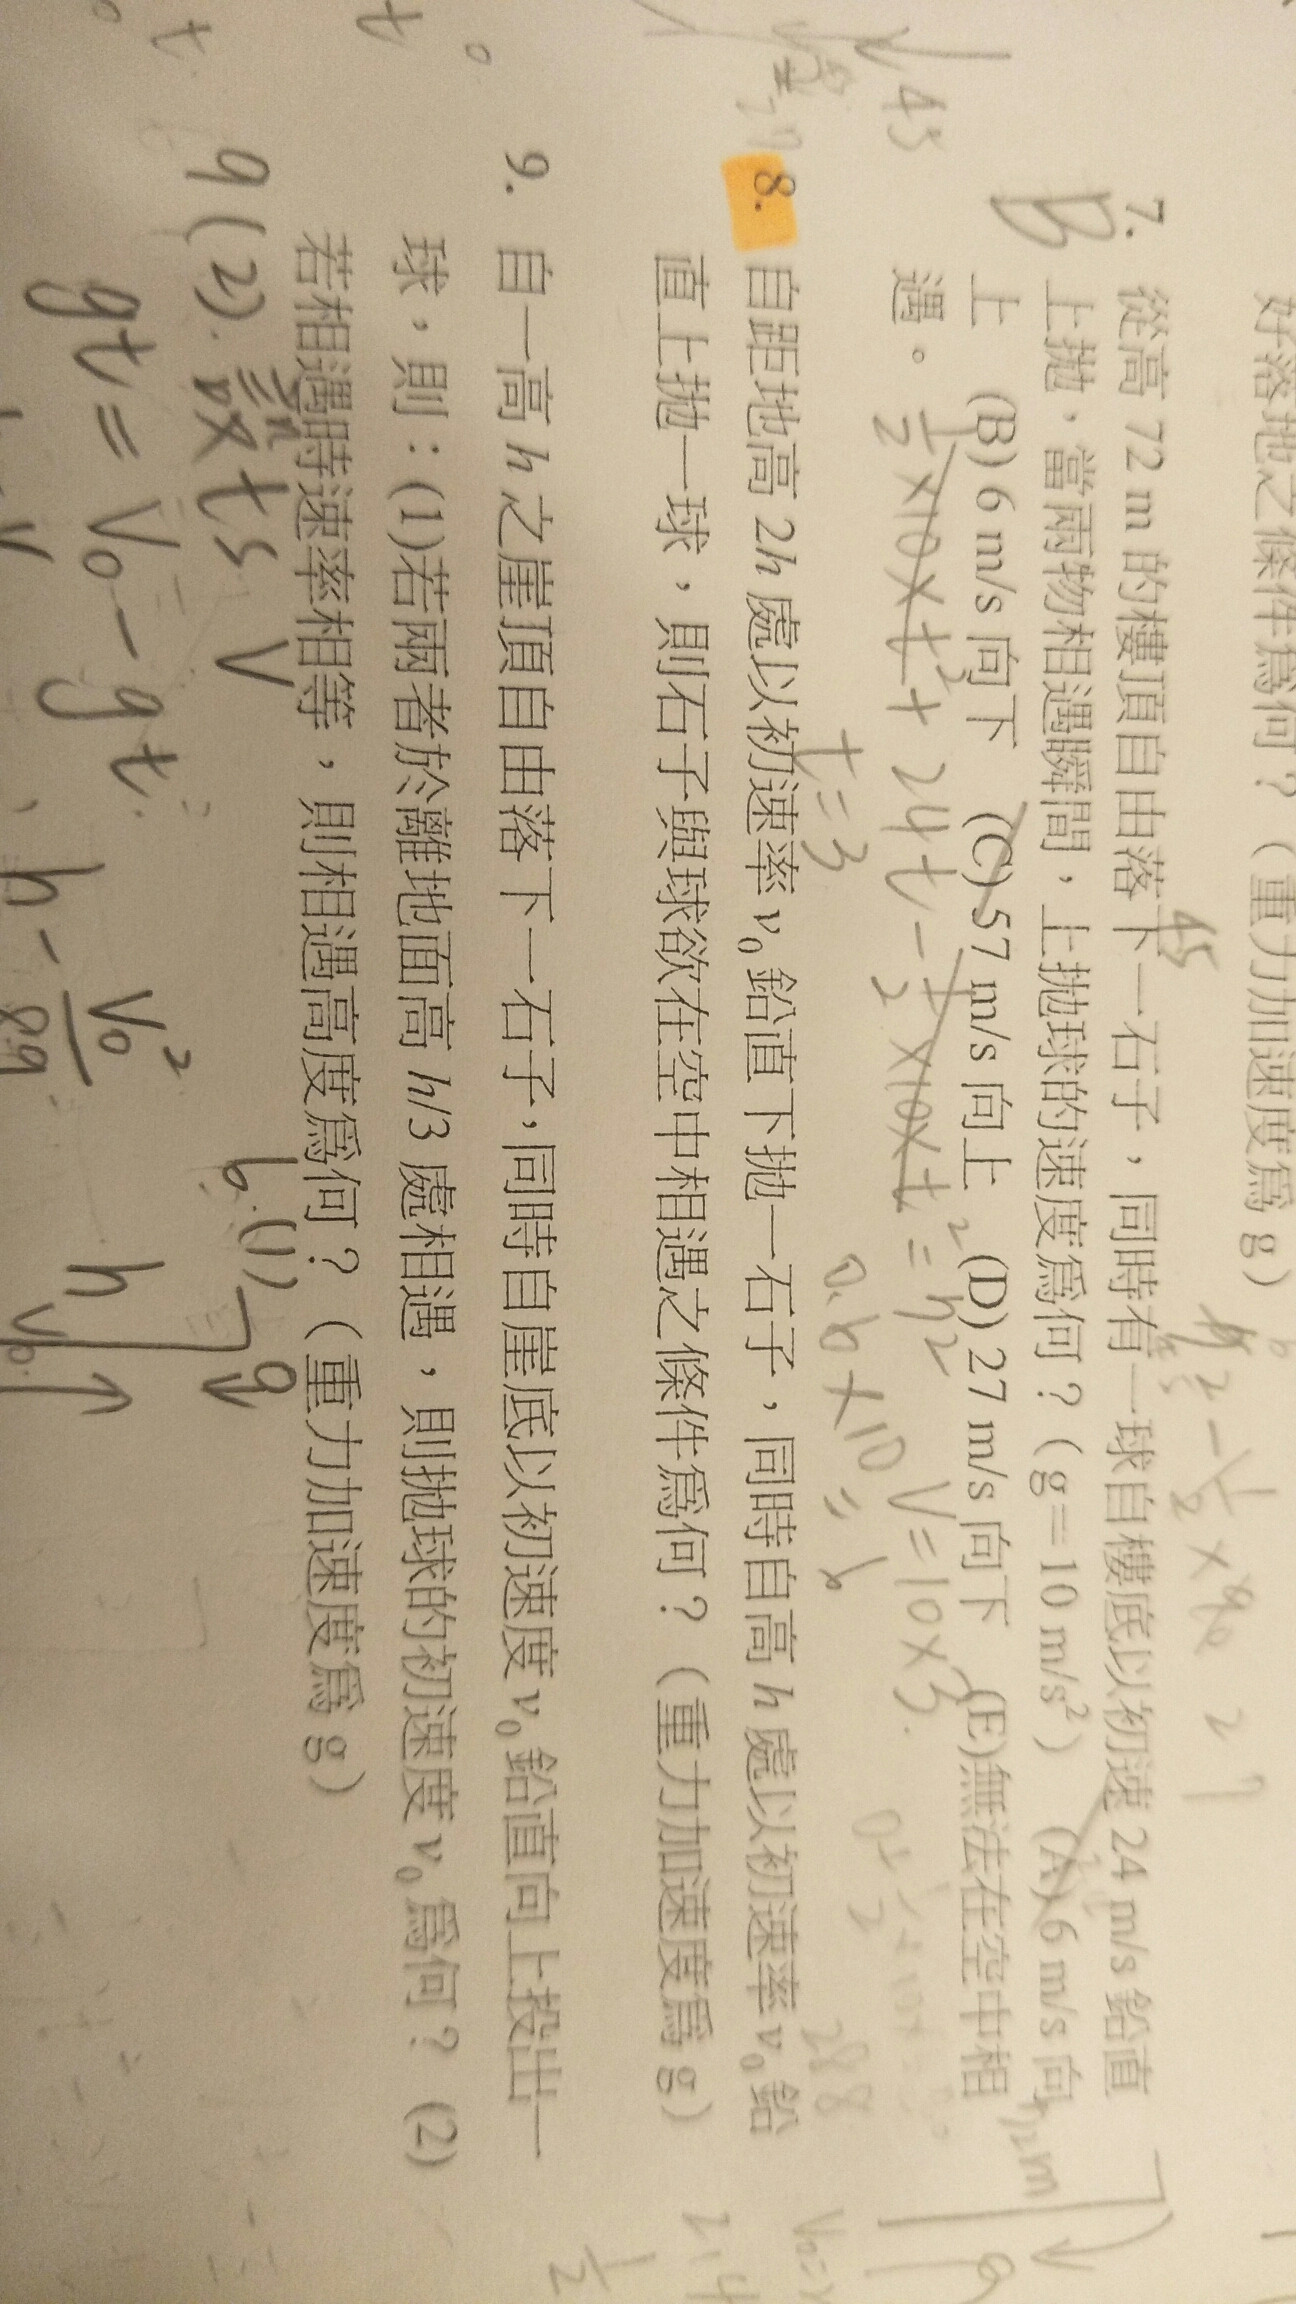 好落地之條件爲何？（重力加速度爲 g）
7. 從高 72 m 的樓頂自由落下一石子，同時有一球自樓底以初速 24 m/s 鉛直
上拋，當兩物相遇瞬間，上拋球的速度爲何？（g＝10 m/s²） (A) 6 m/s 向
上 (B) 6 m/s 向下 (C) 57 m/s 向上 (D) 27 m/s 向下 (E)無法在空中相
遇。
B
45
43
72m
½×10×t²+24t-½×10×t²=72
V=10×3
t=3
0.6×10=6
288
8. 自距地高 2h 處以初速率 v₀ 鉛直下拋一石子，同時自高 h 處以初速率 v₀ 鉛
直上拋一球，則石子與球欲在空中相遇之條件爲何？（重力加速度爲 g）
9. 自一高 h 之崖頂自由落下一石子，同時自崖底以初速度 v₀ 鉛直向上投出一
球，則：(1)若兩者於離地面高 h/3 處相遇，則拋球的初速度 v₀ 爲何？ (2)
若相遇時速率相等，則相遇高度爲何？（重力加速度爲 g）
9 (2). 設 ts
V
6.(1)
g
gt = V₀ - gt
h
V₀
h - V₀²/8g